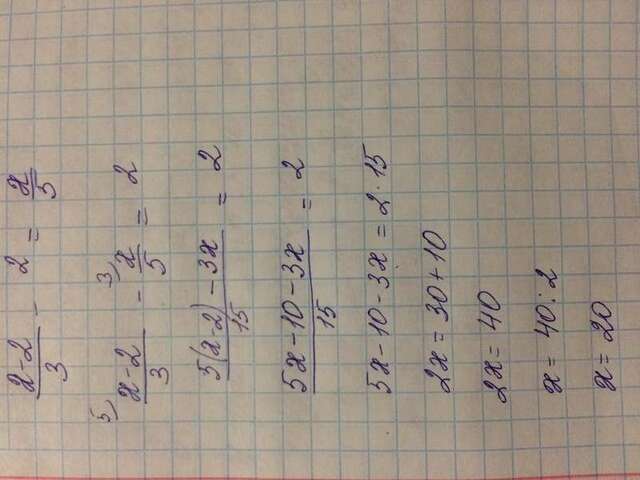 (x-2)/3 - 2 = x/5
5) (x-2)/3 - 3) x/5 = 2
(5(x-2) - 3x)/15 = 2
(5x-10-3x)/15 = 2
5x-10-3x = 2·15
2x = 30+10
2x = 40
x = 40:2
x = 20